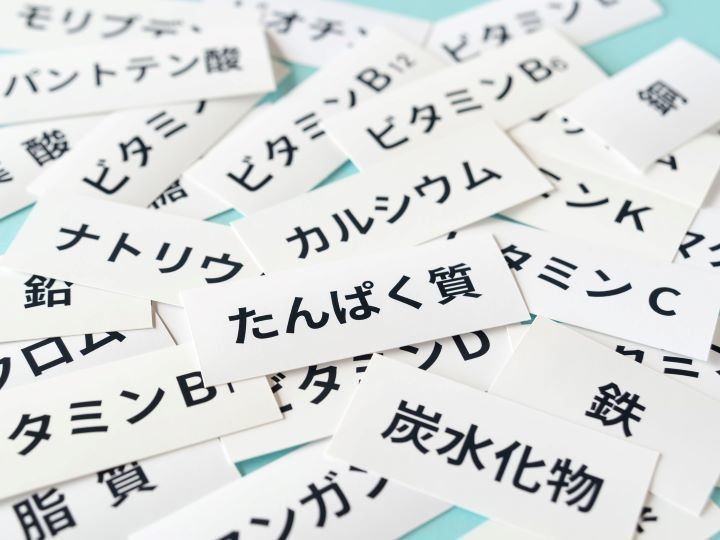 モリブデン
ビオチン
ビタミンE
パントテン酸
ビタミンB12
ビタミンB6
銅
酸
ビタミン
ンK
カルシウム
ナトリウ
タミンC
鉛
たんぱく質
クロム
ビタミンD
タミンB1
鉄
炭水化物
脂質
マンガン